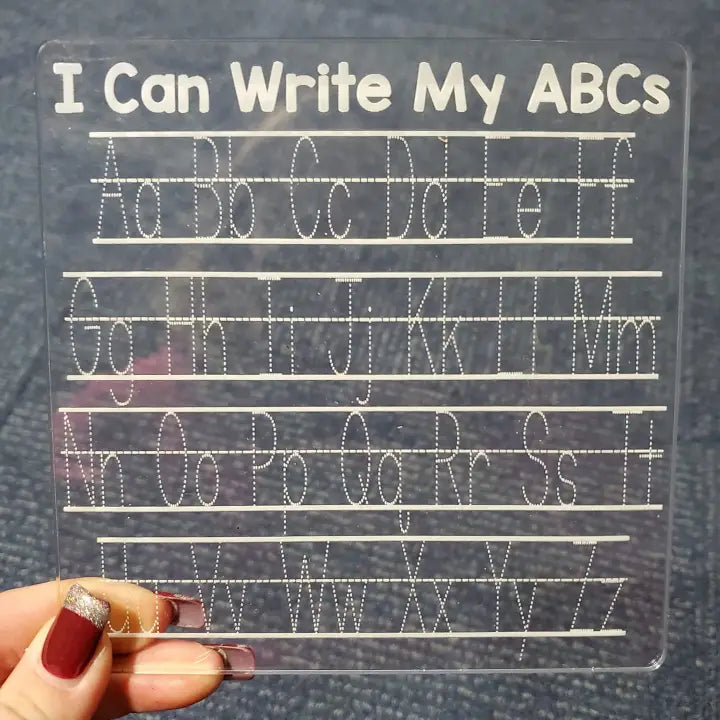 I Can Write My ABCs
Aa Bb Cc Dd Ee Ff
Gg Hh Ii Jj Kk Ll Mm
Nn Oo Pp Qq Rr Ss Tt
Uu Vv Ww Xx Yy Zz